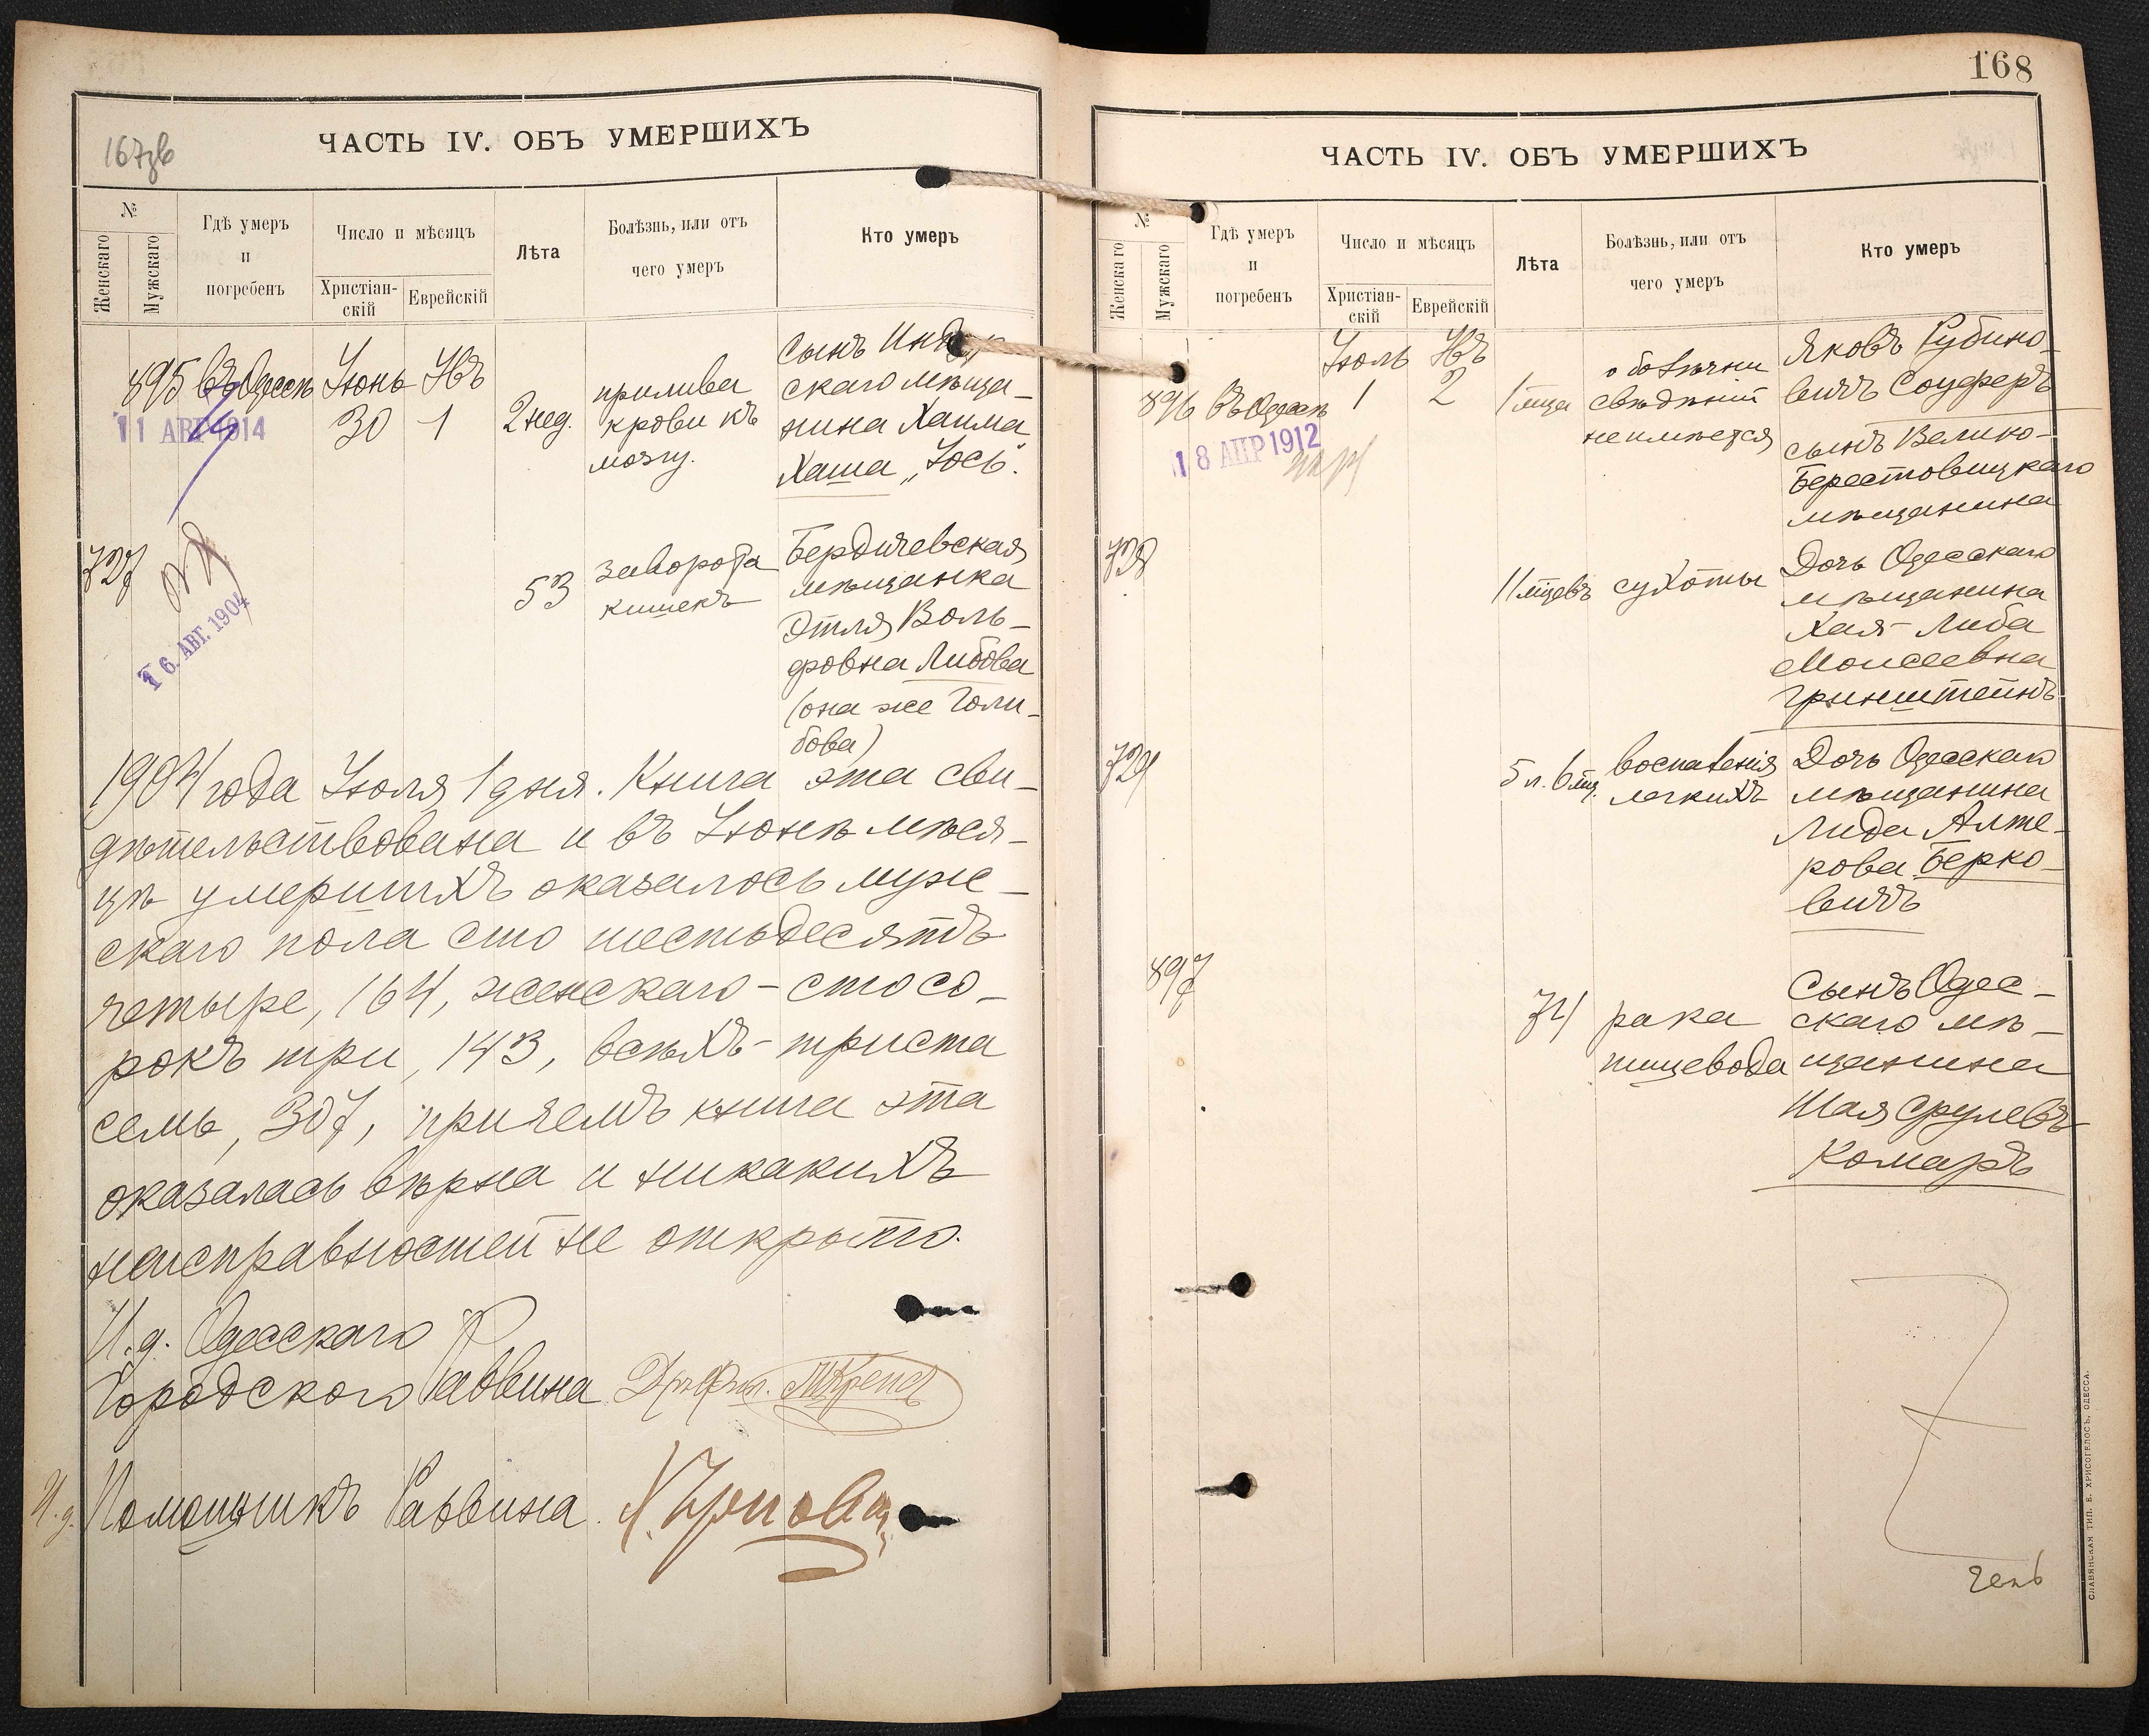 167зв
ЧАСТЬ IV. ОБЪ УМЕРШИХЪ
№
Женскаго
Мужскаго
Гдѣ умеръ
и
погребенъ
Число и мѣсяцъ
Христіан-
скій
Еврейскій
Лѣта
Болѣзнь, или отъ
чего умеръ
Кто умеръ
895 Въ Одессѣ Іюнь
30 1
11 АВГ 1914
2 нед.
прилива
крови къ
мозгу.
Сынъ
скаго мѣща-
нина Хаима
Хаша „Іось".
727
16. АВГ. 1904
53
заворота
кишекъ
Бердичевская
мѣщанка
Этля Воль-
фовна Либова
(она же Голи-
бова)
1904 года Іюля 1 дня. Книга эта сви-
дѣтельствована и въ Іюнѣ мѣся-
цѣ умершихъ оказалось муж-
скаго пола сто шестьдесятъ
четыре, 164, женскаго - сто со-
рокъ три, 143, всѣхъ - триста
семь, 307, причемъ книга эта
оказалась вѣрна и никакихъ
неисправностей не открыто.
И. д. Одесскаго
Городского Раввина
И. д. Помощникъ Раввина
168
ЧАСТЬ IV. ОБЪ УМЕРШИХЪ
№
Женскаго
Мужскаго
Гдѣ умеръ
и
погребенъ
Число и мѣсяцъ
Христіан-
скій
Еврейскій
Лѣта
Болѣзнь, или отъ
чего умеръ
Кто умеръ
Іюль
896 Въ Одессѣ 1 2
18 АПР 1912
1 мца
о болѣзни
свѣдѣній
не имѣется
Яковъ Рубино-
вичъ Соуферъ
сынъ Велико-
Берестовицкаго
мѣщанина
728
11 мцевъ
сухоты
Дочь Одесскаго
мѣщанина
Хая-Либа
Моисеевна
Гринштейнъ
729
5 л. 6 мц.
воспаленія
легкихъ
Дочь Одесскаго
мѣщанина
Лида Алте-
рова Берко-
вичъ
897
74
рака
пищевода
Сынъ Одес-
скаго мѣ-
щанина
Шая Срулевъ
Комаръ
СЛАВЯНСКАЯ ТИП. Е. ХРИСОГЕЛОСЪ, ОДЕССА.